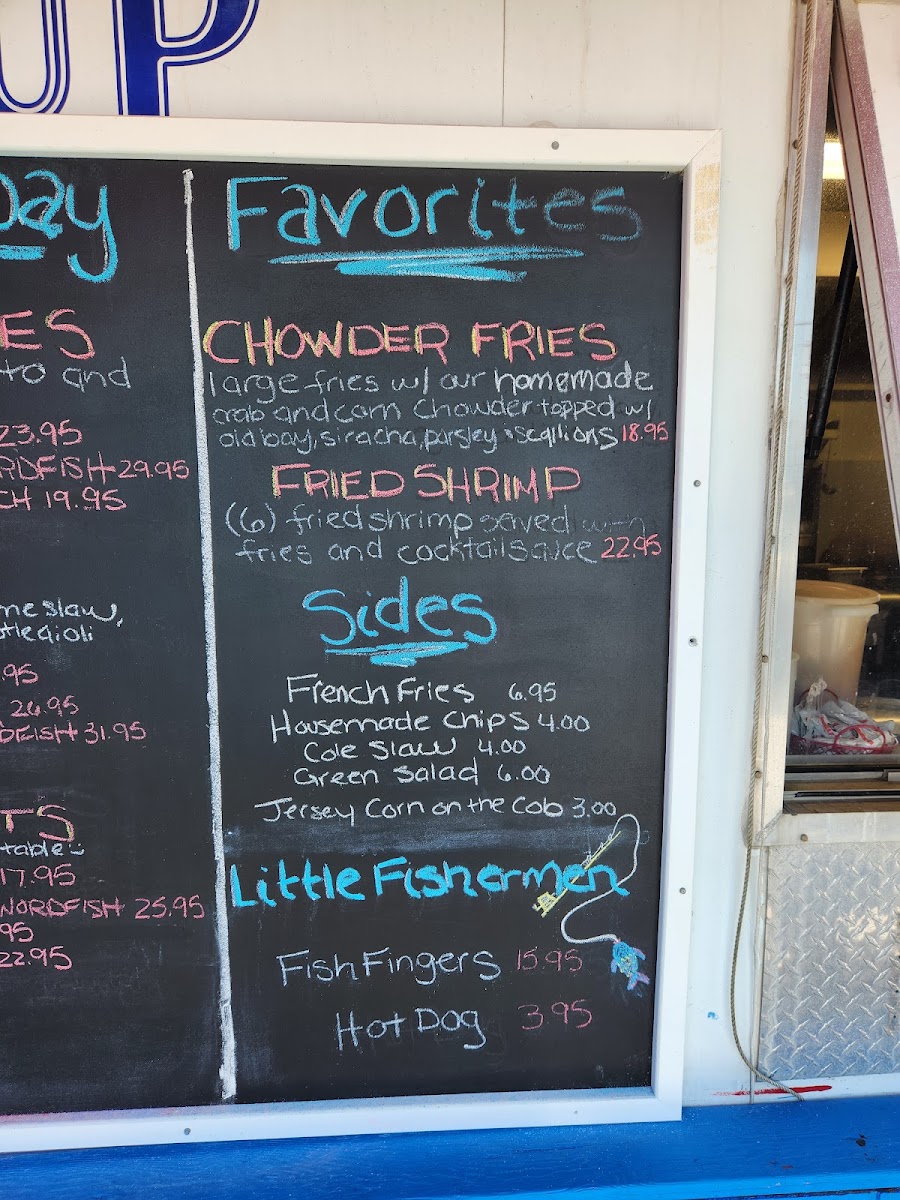 UP
Day
ES
to and
23.95
RDFISH 29.95
CH 19.95
me slaw,
otle aioli
.95
26.95
DFISH 31.95
TS
table
17.95
WORDFISH 25.95
95
22.95
Favorites
CHOWDER FRIES
large fries w/ our homemade
crab and corn chowder topped w/
old bay, siracha, parsley & scallions 18.95
FRIED SHRIMP
(6) fried shrimp served with
fries and cocktail sauce 22.95
Sides
French Fries 6.95
Housemade Chips 4.00
Cole Slaw 4.00
Green Salad 6.00
Jersey Corn on the Cob 3.00
Little Fishermen
Fish Fingers 15.95
Hot Dog 3.95